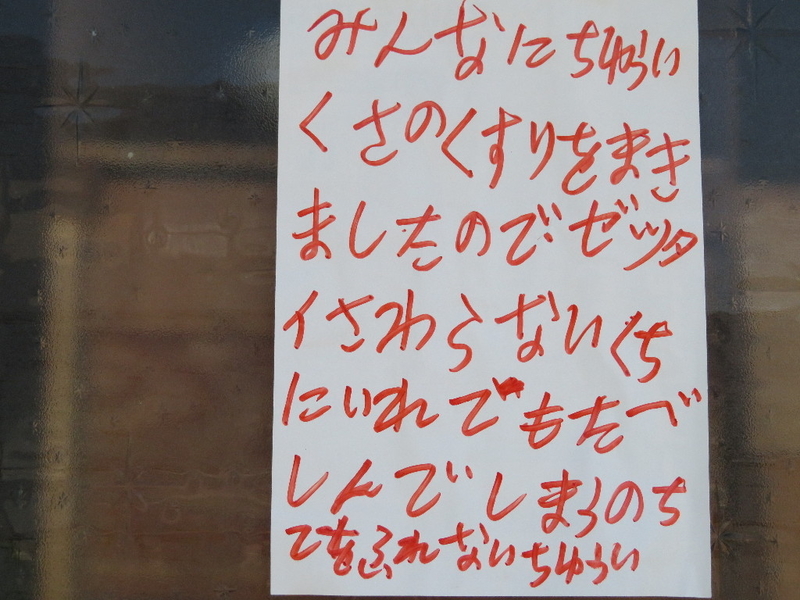 みんなにちゅうい
くさのくすりをまき
ましたのでゼッタ
イさわらないくち
にいれでもたべ
しんでしまうのち
てをふれないちゅうい